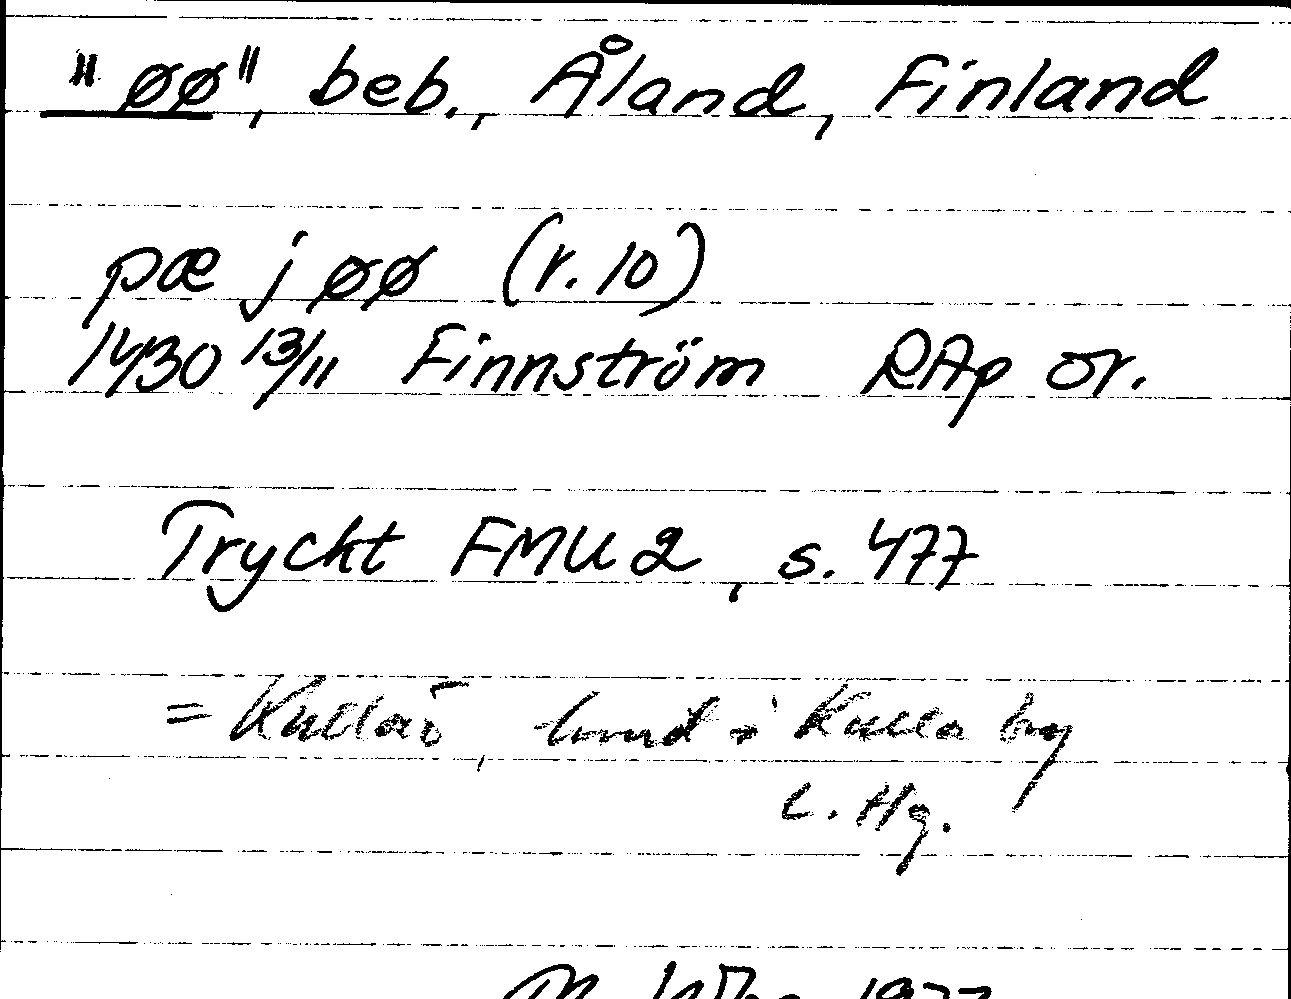 "øø", beb., Åland, Finland
pæ j øø (r. 10)
1430 13/11 Finnström RAp or.
Tryckt FMU 2, s. 477
= Kullaö, hmd i Kulla by
L. Hg.
1977